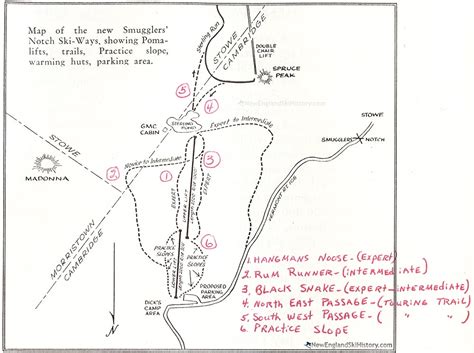 Map of the new Smugglers'
Notch Ski-Ways, showing Poma-
lifts, trails, Practice slope,
warming huts, parking area.
Sterling Run
STOWE
CAMBRIDGE
DOUBLE
CHAIR
LIFT
SPRUCE
PEAK
5
4
NewEnglandSkiHistory.com
GMC
CABIN
STERLING
POND
Expert to Intermediate
STOWE
SMUGGLERS
NOTCH
STOWE
Novice to Intermediate
MADONNA
2
1
3
EXPERT
UPPER LIFT
EXPERT
VERMONT RTE 108
MORRISTOWN
CAMBRIDGE
6
PRACTICE
SLOPES
PRACTICE
SLOPES
DICK'S
CAMP AREA
PROPOSED
PARKING
AREA
N
1. HANGMANS NOOSE-(Expert)
2. RUM RUNNER-(intermediate)
3. BLACK SNAKE-(expert-intermediate)
4. NORTH EAST PASSAGE-(TOURING TRAIL)
5. SOUTH WEST PASSAGE-( " " )
6. PRACTICE SLOPE
NewEnglandSkiHistory.com